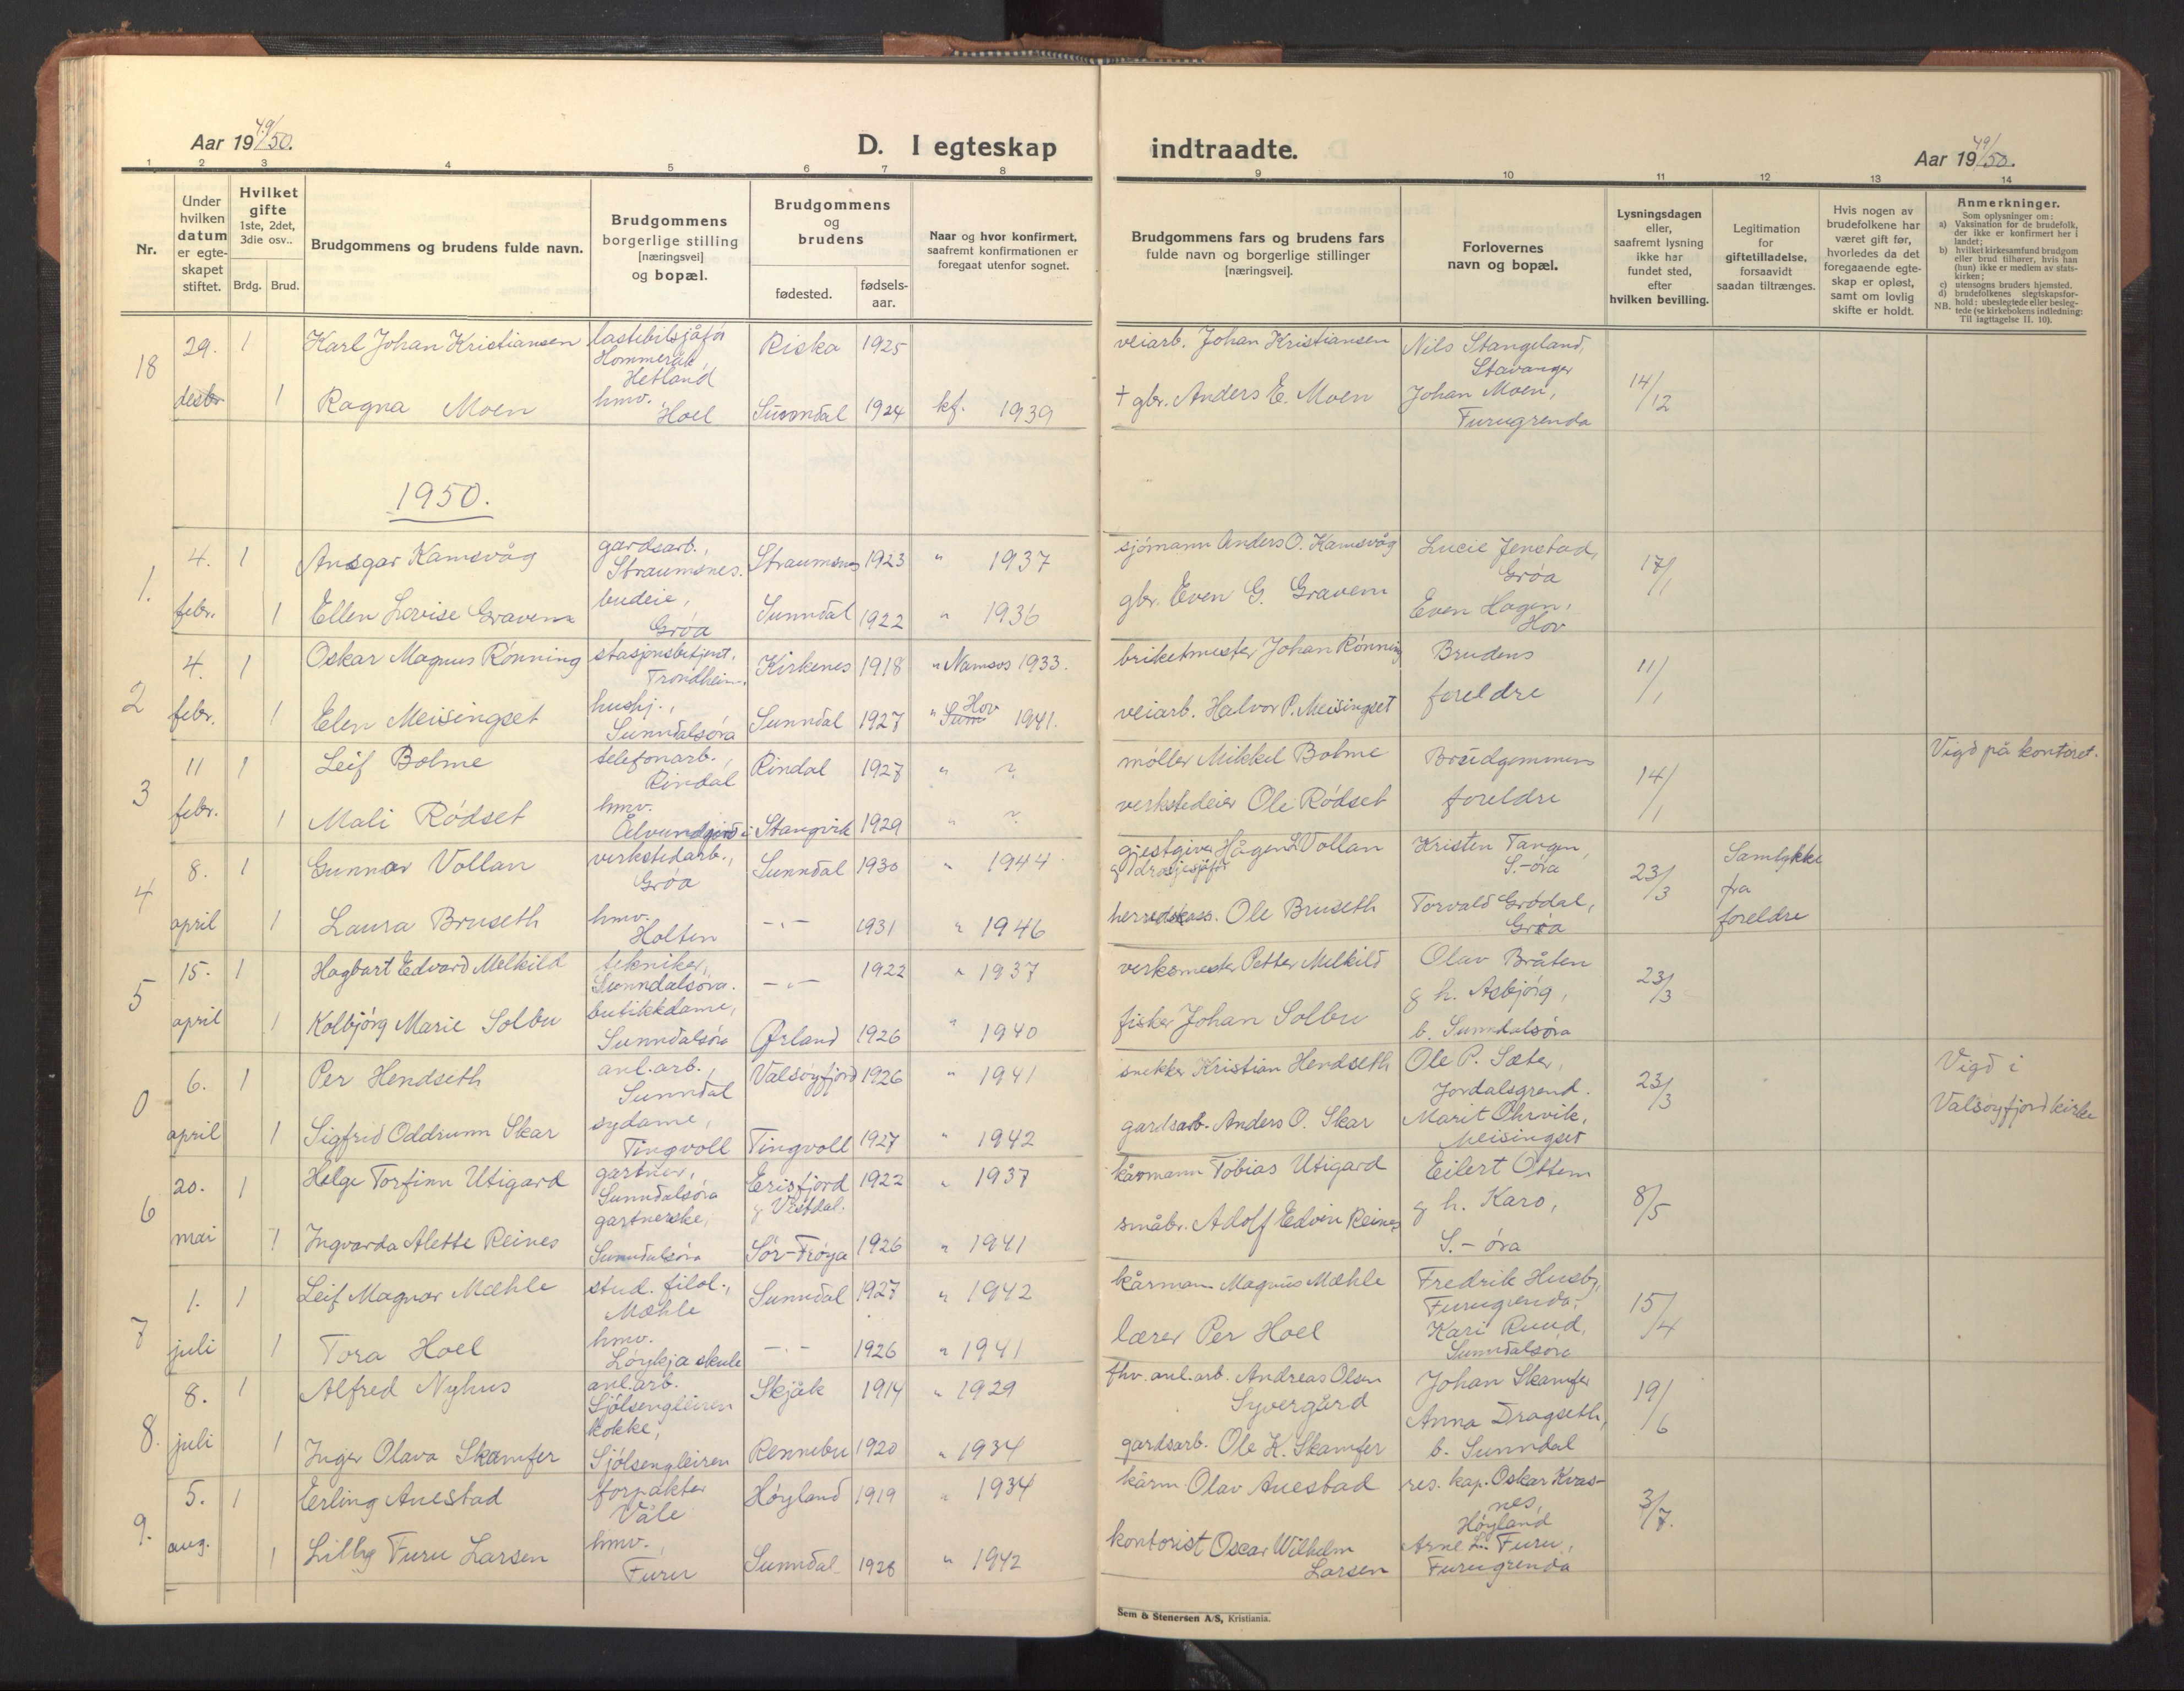 Aar 19 49/50.
D. I egteskap
indtraadte.
Aar 19 49/50.
1 2 3 4 5 6 7 8 9 10 11 12 13 14
Nr.
Under hvilken datum er egte-skapet stiftet.
Hvilket gifte 1ste, 2det, 3die osv..
Brdg. Brud.
Brudgommens og brudens fulde navn.
Brudgommens borgerlige stilling [næringsvei] og bopæl.
Brudgommens og brudens
fødested.
fødsels-aar.
Naar og hvor konfirmert, saafremt konfirmationen er foregaat utenfor sognet.
Brudgommens fars og brudens fars fulde navn og borgerlige stillinger [næringsvei].
Forlovernes navn og bopæl.
Lysningsdagen eller, saafremt lysning ikke har fundet sted, efter hvilken bevilling.
Legitimation for giftetilladelse, forsaavidt saadan tiltrænges.
Hvis nogen av brudefolkene har været gift før, hvorledes da det foregaaende egte-skap er opløst, samt om lovlig skifte er holdt.
Anmerkninger.
Som oplysninger om:
a) Vaksination for de brudefolk, der ikke er konfirmert her i landet;
b) hvilket kirkesamfund brudgom eller brud tilhører, hvis han (hun) ikke er medlem av stats-kirken;
c) utensogns bruders hjemsted.
d) brudefolkenes slegtskapsfor-hold: ubeslegtede eller besleg-tede (se kirkebokens indledning:
NB. Til iagttagelse II. 10).
18 29. 1 Karl Johan Kristiansen lastebilsjåfør Hommersåk, Hetland Riska 1925 veiarb. Johan Kristiansen Nils Stangeland, Stavanger 14/12
desbr 1 Ragna Moen hmv. Hoel Sunndal 1924 kf. 1939 + gbr. Anders E. Moen Johan Moen, Furugrenda
1950.
1. 4. 1 Ansgar Kamsvåg gardsarb., Straumsnes. Straumsnes 1923 " 1937 sjómann Anders O. Kamsvåg Lucie Jenstad, Grøa 17/1
febr. 1 Ellen Lovise Gravem budeie, Grøa Sunndal 1922 " 1936 gbr. Even G. Gravem Even Hagen, Hov
2 4. 1 Oskar Magnus Rónning stasjonsbetjent, Trondheim. Kirkenes 1918 " Namsos 1933. briketmester Johan Rónning Brudens 11/1
febr. 1 Elen Meisingset hushj., Sunndalsóra Sunndal 1927 " Hov 1941. veiarb. Halvor P. Meisingset foreldre
3 11 1 Leif Bolme telefonarb., Rindal Rindal 1927 " ? móller Mikkel Bolme Brudgommens 14/1 Vigd på kontoret.
febr. 1 Mali Ródset hmv. Ålvundfjord i Stangvik 1929 " ? verkstedeier Ole Ródset foreldre
4 8. 1 Gunnar Vollan verkstedarb., Grøa Sunndal 1930 " 1944 gjestgiver Hågen L Vollan & drosjesjåfór Kristen Tangen, S.-óra 23/3 Samtykke
april 1 Laura Bruseth hmv. Holten -"- 1931 " 1946 herredskass. Ole Bruseth Torvald Grødal, Grøa fra foreldre
5 15. 1 Hagbart Edvard Melkild tekniker, Sunndalsóra. -"- 1922 " 1937 verksmester Petter Melkild Olav Bråten 23/3
april 1 Kolbjórg Marie Solbu butikkdame, Sunndalsóra Ørland 1926 " 1940 fisker Johan Solbu & h. Asbjórg, b. Sunndalsóra
0 6. 1 Per Hendseth anl.arb., Sunndal Valsóyfjord 1926 " 1941 snekker Kristian Hendseth Ole P. Sæter, Jordalsgrend. 23/3 Vigd i
april 1 Sigfrid Oddrunn Skar sydame, Tingvoll Tingvoll 1927 " 1942 gardsarb. Anders O. Skar Marit Ohrvik, Meisingset Valsóyfjord kirke
6 20. 1 Helge Torfinn Utigard gartner, Sunndalsóra Erisfjord & Vistdal. 1922 " 1937 kårmann Tobias Utigard Eilert Ottem 8/5
mai 1 Ingvarda Alette Reines gartnerske, Sunndalsóra Sór-Fróya 1926 " 1941 småbr. Adolf Edvin Reines & h. Karo, S.-óra
7 1. 1 Leif Magnar Mæhle stud. filol., Mæhle Sunndal 1927 " 1942 kårmann Magnus Mæhle Fredrik Husby, Furugrenda, 15/4
juli 1 Tora Hoel hmv. Lóykja skule -"- 1926 " 1941 lærer Per Hoel Kari Ruud, Sunndalsóra
8. 8. 1 Alfred Nyhus anl.arb. Sjólsengleiren Skjåk 1914 " 1929 fhv. anl.arb. Andreas Olsen Syvergård Johan Skamfer 19/6
juli 1 Inger Olava Skamfer kokke, Sjólsengleiren Rennebu 1920 " 1934 gardsarb. Ole K. Skamfer Anna Dragseth, b. Sunndal
9. 5. 1 Erling Auestad forpakter Våle Hóyland 1919 " 1934 kårm Olav Auestad res. kap. Oskar Kvas-nes, Hóyland 3/7.
aug. 1 Lilly Furu Larsen hmv., Furu Sunndal 1928 " 1942 kontorist Oscar Wilhelm Larsen Arne L. Furu, Furugrenda
Sem & Stenersen A/S, Kristiania.